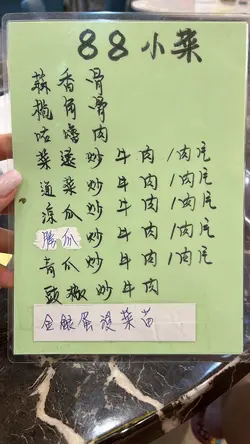 88小菜
蒜香骨
骨
咕嚕肉
菜遠炒牛肉/肉片
通菜炒牛肉/肉片
涼瓜炒牛肉/肉片
勝瓜炒牛肉/肉片
青瓜炒牛肉/肉片
豉椒炒牛肉
金銀蛋浸菜苗